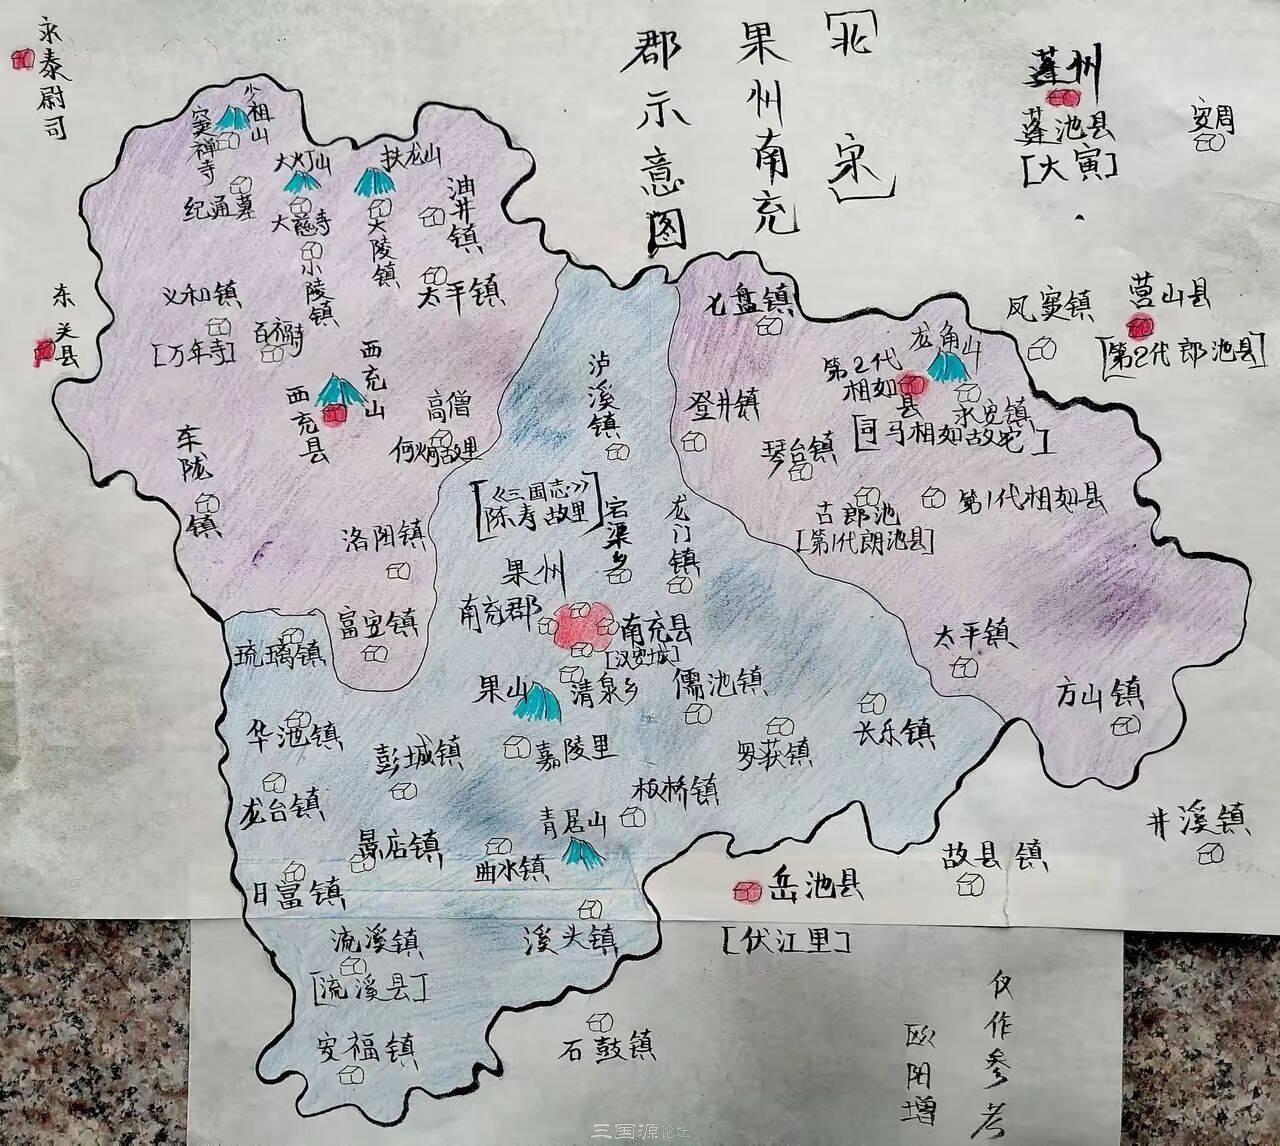 [北宋]
果州南充
郡示意图
永泰尉司
蓬州
蓬池县
[大寅]
安周
少祖山
窦禅寺
大火丁山
扶龙山
纪通墓
大慈寺
大陵镇
油井镇
小陵镇
太平镇
义和镇
[万年寺]
百福寺
东关县
西充山
西充县
高僧
何炯故里
车陇镇
洛阳镇
富安镇
七盘镇
龙角山
第2代
相如县
永安镇
[司马相如故宅]
凤窦镇
营山县
[第2代郎池县]
泸溪镇
登井镇
琴台镇
古郎池
[第1代朗池县]
第1代相如县
[《三国志》
陈寿故里]
宕渠乡
龙门镇
果州
南充郡
南充县
[汉安城]
清泉乡
果山
儒池镇
太平镇
方山镇
琉璃镇
华池镇
彭城镇
嘉陵里
罗获镇
长乐镇
龙台镇
板桥镇
青居山
昙店镇
曲水镇
日富镇
岳池县
[伏江里]
故县镇
井溪镇
流溪镇
[流溪县]
溪头镇
安福镇
石鼓镇
仅作参考
欧阳增
三国源论坛